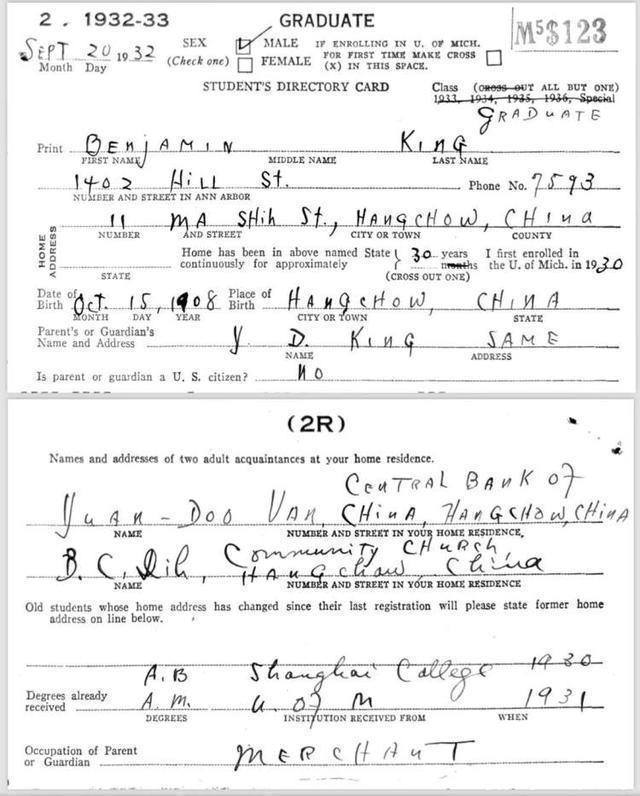 2. 1932-33 GRADUATE M5$123
SEPT 20 1932 SEX MALE IF ENROLLING IN U. OF MICH.
(Check one) FEMALE FOR FIRST TIME MAKE CROSS
Month Day (X) IN THIS SPACE.
STUDENT'S DIRECTORY CARD Class (CROSS OUT ALL BUT ONE)
1933, 1934, 1935, 1936, Special
GRADUATE
Print BENJAMIN KING
FIRST NAME MIDDLE NAME LAST NAME
1402 Hill St. Phone No. 7593
NUMBER AND STREET IN ANN ARBOR
HOME ADDRESS
11 MA SHih St., HANGCHOW, CHINA
NUMBER AND STREET CITY OR TOWN COUNTY
Home has been in above named State 30 years I first enrolled in
continuously for approximately months the U. of Mich. in 1930
STATE (CROSS OUT ONE)
Date of Birth Oct. 15, 1908 Place of Birth HANGCHOW, CHINA
MONTH DAY YEAR CITY OR TOWN STATE
Parent's or Guardian's
Name and Address Y D. KING SAME
NAME ADDRESS
Is parent or guardian a U. S. citizen? NO
(2R)
Names and addresses of two adult acquaintances at your home residence.
CENTRAL BANK OF
YUAN-DOO VAN, CHINA, HANGCHOW, CHINA
NAME NUMBER AND STREET IN YOUR HOME RESIDENCE,
B. C. Community CHURCH,
HANGchow, China
NAME NUMBER AND STREET IN YOUR HOME RESIDENCE
Old students whose home address has changed since their last registration will please state former home
address on line below.
A.B Shanghai College 1930
Degrees already
received A.M. U. of M 1931
DEGREES INSTITUTION RECEIVED FROM WHEN
Occupation of Parent
or Guardian MERCHANT